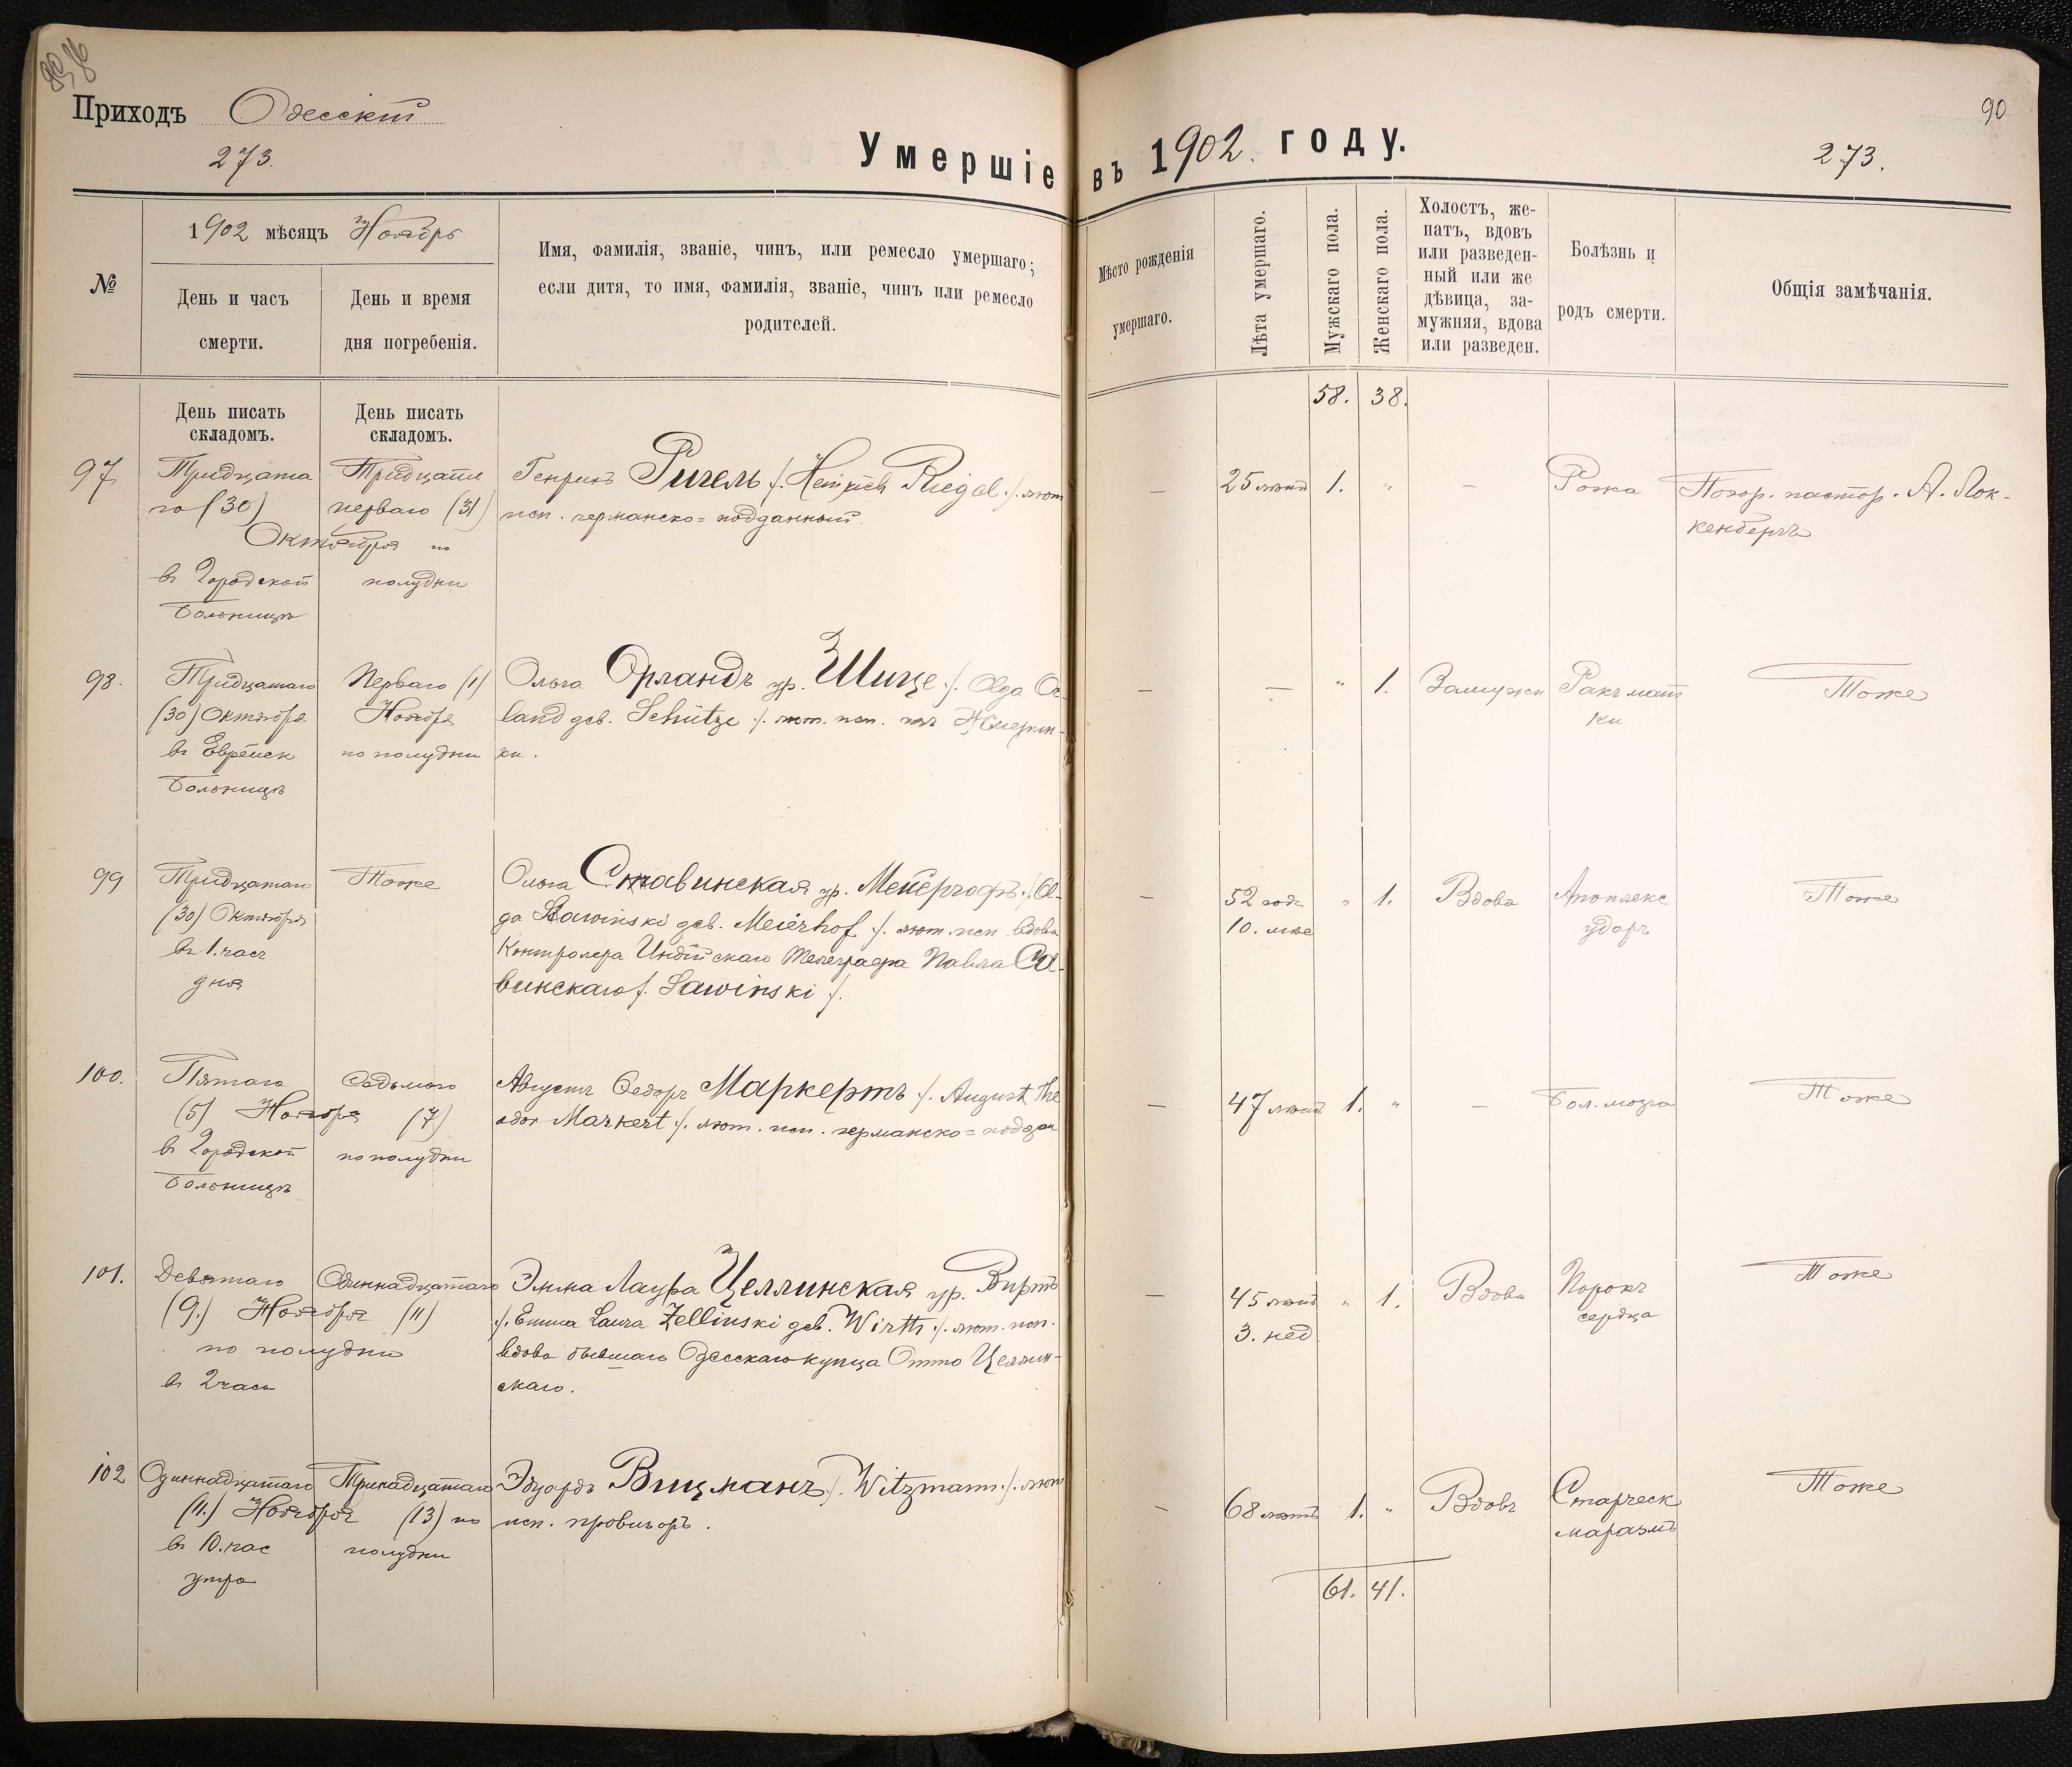 Приходъ Одесскій
273.
Умершіе въ 1902 году.
90
273.
№
1902 мѣсяцъ Ноябрь
День и часъ смерти.
День и время дня погребенія.
Имя, фамилія, званіе, чинъ, или ремесло умершаго;
если дитя, то имя, фамилія, званіе, чинъ или ремесло
родителей.
Мѣсто рожденія
умершаго.
Лѣта умершаго.
Мужскаго пола.
Женскаго пола.
Холостъ, же-
натъ, вдовъ
или разведен-
ный или же
дѣвица, за-
мужняя, вдова
или разведен.
Болѣзнь и
родъ смерти.
Общія замѣчанія.
День писать
складомъ.
День писать
складомъ.
58. 38.
97
Тридцата
го (30)
Октября
въ Городской
Больницѣ
Тридцать
перваго (31)
по
полудни
Генрихъ Ригель /. Heinrich Riegel ./. лют
исп. германско=подданный.
— 25 лѣтъ 1. „ — Рожа
Похор. пастор. А. Лок-
кенбергъ
98.
Тридцатаго
(30) Октября
въ Еврейск
Больницѣ
Перваго (1)
Ноября
по полудни
Ольга Орландъ ур. Шице ./. Olga Or-
land geb. Schütze ./. лют. исп. изъ Жмерин-
ки.
— — „ 1. Замужн Ракъ мат
ки
Тоже
99
Тридцатаго
(30) Октября
въ 1. часъ
дня
Тоже
Ольга Ставинская ур. Мейергофъ ./. Ol-
ga Stawinski geb. Meierhof ./. лют. исп. вдова
Контролера Индійскаго Телеграфа Павла Са-
винскаго /. Sawinski ./.
— 52 года
10. мѣс
„ 1. Вдова Апоплекс
ударъ
Тоже
100.
Пятаго
(5) Ноября
въ Городской
Больницѣ
Седьмого
(7)
по полудни
Августъ Ѳедоръ Маркертъ ./. August The
odor Markert ./. лют. исп. германско=поддан
— 47 лѣтъ 1. „ — Бол. мозга Тоже
101.
Девятаго
(9.) Ноября
по полудни
въ 2 часа
Одиннадцатаго
(11)
Эмма Лаура Целлинская ур. Виртъ
./. Emma Laura Zellinski geb. Wirth ./. лют. исп.
вдова бывшаго Одесскаго купца Отто Целлин-
скаго.
— 45 лѣтъ
3. нед
„ 1. Вдова Порокъ
сердца
Тоже
102
Одиннадцатаго
(11.) Ноября
въ 10. час
утра
Тринадцатаго
(13) по
полудни
Эдуардъ Вицманъ ./. Witzmann ./. лют
исп. провизоръ.
— 68 лѣтъ 1. „ Вдовъ Старческ
маразмъ
Тоже
61. 41.